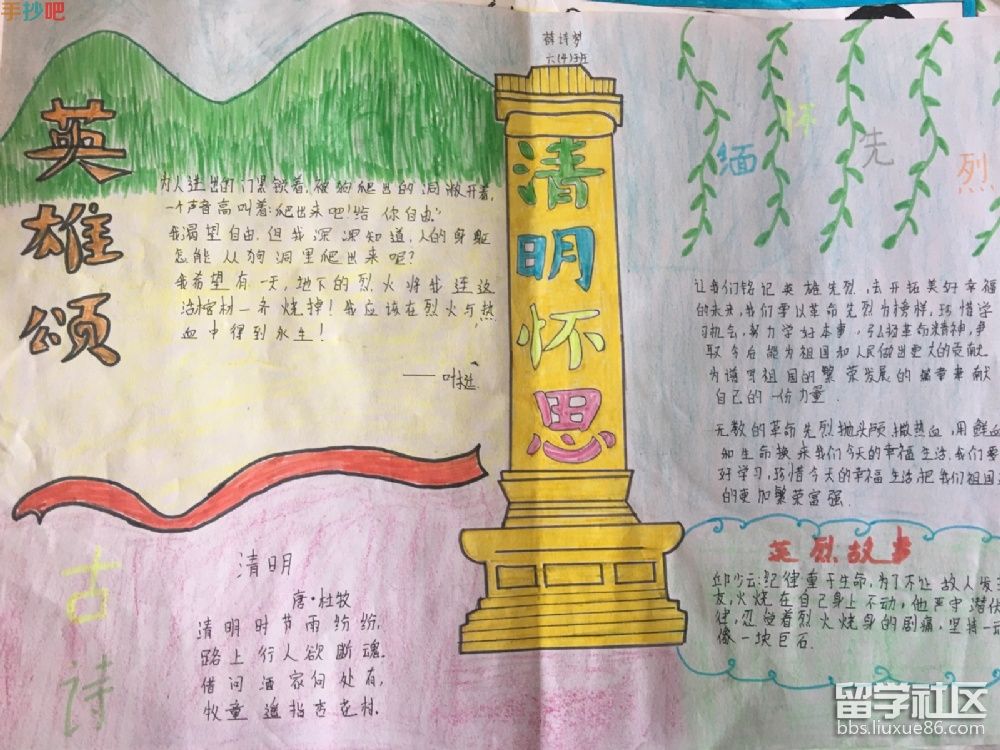 手抄吧
薛诗梦
六(4)班
英雄颂
为人进出的门紧锁着,被狗爬出的洞敞开着,
一个声音高叫着:爬出来吧!给你自由
我渴望自由,但我深深知道,人的身躯
怎能从狗洞里爬出来呢?
我希望有一天,地下的烈火将我连这
活棺材一齐烧掉!我应该在烈火与热
血中得到永生!
——叶挺
清明怀思
缅怀先烈
让我们铭记英雄先烈,去开拓美好幸福
的未来,我们要以革命先烈为榜样,珍惜学
习机会,努力学好本事,弘扬革命精神,争
取今后能为祖国和人民做出更大的贡献
为谱写祖国的繁荣发展的篇章来献
自己的一份力量
无数的革命先烈抛头颅撒热血,用鲜血
和生命换来我们今天的幸福生活,我们要
好学习,珍惜今天的幸福生活,把我们祖国
的更加繁荣富强
英烈故事
邱少云:纪律重于生命,为了不让敌人发
友,火烧在自己身上不动,他严守潜伏
律,忍受着烈火烧身的剧痛,坚持一动
像一块巨石.
古诗
清明
唐·杜牧
清明时节雨纷纷,
路上行人欲断魂.
借问酒家何处有,
牧童遥指杏花村.
留学社区
bbs.liuxue86.com